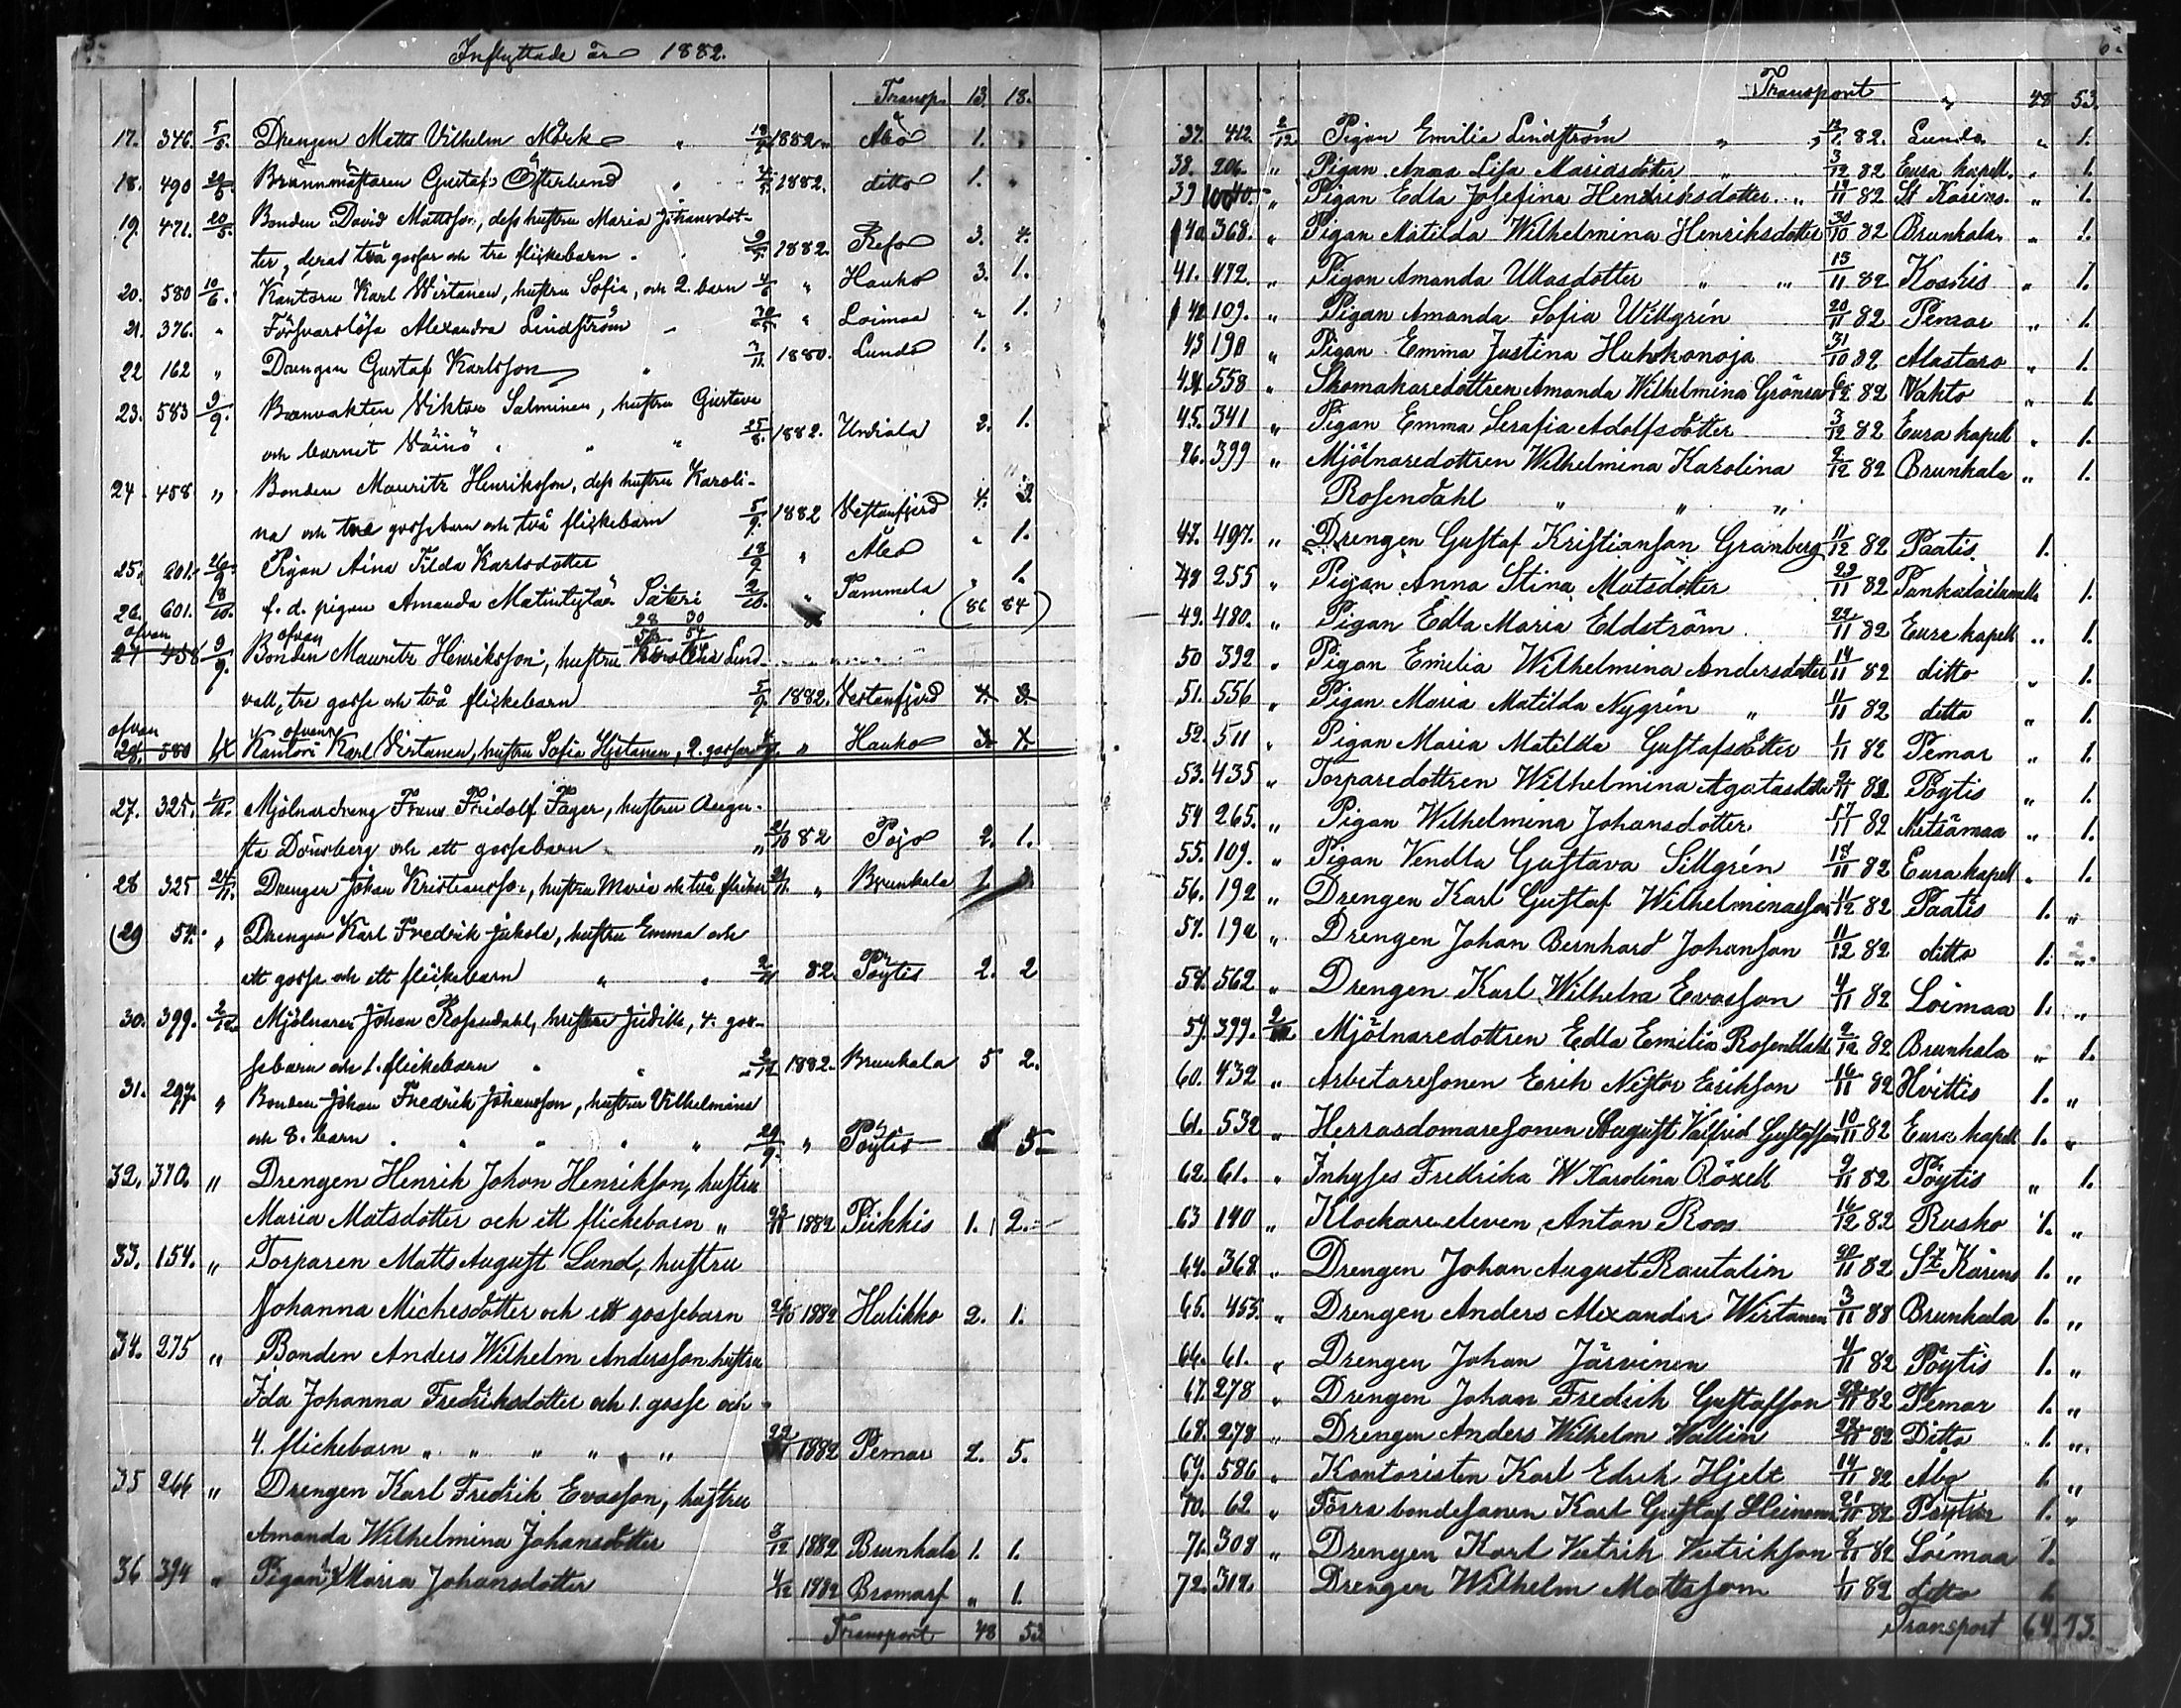 5.
Inflyttade år 1882.
Transp. 13. 18.
17. 346. 5/5. Drengen Matts Vilhelm Mörk " 1882 " Åbo 1.
18. 490 Brännmästaren Gustaf Österlund " 1882. ditto 1. "
19. 471. 20/5. Bonden David Mattsson, dess hustru Maria Johansdot-
ter, deras två gossar och tre flickebarn " 9/5. 1882. Reso 3. 4.
20. 580 10/6. Kantorn Karl Wirtanen, hustru Sofia, och 2. barn 4/6 " Hauho 3. 1.
21. 376. " Försvarslösa Alexandra Lindström " Loimaa " 1.
22 162 " Drengen Gustaf Karlsson " 1880. Lundo 1. "
23. 583 9/9. Banvakten Viktor Salminen, hustru Gustava
och barnet Väinö " " " 25/8. 1882. Urdiala 2. 1.
24 458 " Bonden Mauritz Henriksson, dess hustru Karoli-
na och tre gossebarn och två flickebarn 5/9. 1882 Vestanfjerd 4. 3
25. 201. 26/9 Pigan Aina Tilda Karlsdotter 18/9 " Åbo " 1.
26. 601. 18/10. f. d. pigan Amanda Säteri 2/10. " Tammela " 1.
28 30 (86 84)
ofvan ofvan 54
27 458 9/9. Bonden Mauritz Henriksson, hustru Lind-
vall, tre gosse och två flickebarn 5/9. 1882. Vestanfjerd 4. 3.
ofvan ofvan
28. 580 Kantori Karl Virtanen, hustru Sofia 2. gossar " Hauho 3. 1.
27. 325. 1/11. Mjölnardreng Frans Fridolf Fager, hustru Augu-
sta Dönsberg och ett gossebarn " 21/10 82 Pojo 2. 1.
28 325 24/11. Drengen Johan Kristiansson, hustru Maria och två flickor " Brunkala 1.
29 57. " Drengen Karl Fredrik Jakola, hustru Emma och
ett gosse och ett flickebarn " " 2/11 82. Pöytis 2. 2
30. 399. 2/12. Mjölnaren Johan Rosendahl, hustru Judith, 4. gos-
sebarn och 1. flickebarn " " 2/12 1882. Brunkala 5 2.
31. 297. " Bonden Johan Fredrik Johansson, hustru Vilhelmina
och 8. barn " " " " " 29/9. " Pöytis 5
32. 370. " Drengen Henrik Johan Henriksson, hustru
Maria Matsdotter och ett flickebarn " 1882 Piikkis 1. 2.
33. 154. " Torparen Matts August Lund, hustru
Johanna Michelsdotter och ett gossebarn 26/10 1882 Halikko 2. 1.
34. 275 " Bonden Anders Wilhelm Andersson hustru
Ida Johanna Fredriksdotter och 1. gosse och
4. flickebarn " " " " " " 1882 Pemar 2. 5.
35 266 " Drengen Karl Fredrik Evasson, hustru
Amanda Wilhelmina Johansdotter 3/12 1882 Brunkala 1. 1.
36 394 " Pigan Maria Johansdotter 4/12 1882 Bromarf " 1.
Transport 48 53
6.
Transport " 48 53.
37. 412. 2/12 Pigan Emilia Lindström " " 82. Lundo " 1.
38. 206. " Pigan Anna Lisa Mariasdotter " 3/12 82 Eura kapell. " 1.
39 1040. " Pigan Edla Josefina Hendriksdotter " 82 St Karins. " 1.
40. 368. " Pigan Matilda Wilhelmina Henriksdotter 30/10 82 Brunkala. " 1.
41. 472. " Pigan Amanda Ullasdotter " " 15/11 82 Koskis " 1.
42 109. " Pigan Amanda Sofia Willgrén 20/11 82 Pemar " 1.
43 190 " Pigan Emma Justina Huhkonoja 31/10 82 Alastaro " 1.
44. 558 " Skomakaredottren Amanda Wilhelmina Grönroos 6/12 82 Vahto " 1
45. 341 " Pigan Emma Serafia Adolfsdotter 3/12 82 Eura kapell " 1.
46. 399 " Mjölnaredottren Wilhelmina Karolina 2/12 82 Brunkala " 1.
Rosendahl " " "
47. 497. " Drengen Gustaf Kristianson Granberg 11/12 82 Paatis 1.
48 255 " Pigan Anna Stina Matsdotter 29/11 82 1.
49. 480. " Pigan Edla Maria Eldström 22/11 82 Eura kapell " 1.
50 392 " Pigan Emilia Wilhelmina Andersdotter 14/11 82 ditto " 1.
51. 556 " Pigan Maria Matilda Nygrén " 11/11 82 ditto " 1.
52. 511 " Pigan Maria Matilda Gustafsdotter 1/11 82 Pemar " 1.
53. 435 " Torparedottren Wilhelmina Agatasdotter 82 Pöytis " 1.
54 265. " Pigan Wilhelmina Johansdotter 17/11 82 Metsämaa " 1.
55. 109. " Pigan Vendla Gustava Sillgrén 18/11 82 Eura kapell " 1.
56. 192 " Drengen Karl Gustaf Wilhelminasson 11/12 82 Paatis 1. "
57. 192 " Drengen Johan Bernhard Johansson 11/12 82 ditto 1. "
58. 562 " Drengen Karl Wilhelm Evasson 4/11 82 Loimaa 1. "
59. 399. Mjölnaredottren Edla Emilia Rosendahl 2/12 82 Brunkala " 1.
60. 432 " Arbetaresonen Erik Nestor Erikson 16/11 82 Hvittis 1. "
61. 532 " Herrasdomaresonen August Valfrid Gustafsson 10/11 82 Eura kapell 1. "
62. 61. " Inhyses Fredrika W Karolina Röxell 9/11 82 Pöytis " 1.
63 140 " Klockareeleven, Anton Roos 16/12 82 Rusko 1. "
64. 368. " Drengen Johan August Rautalin 82 St. Karins 1. "
65. 455. " Drengen Anders Alexander Wirtanen 3/11 88 Brunkala 1. "
66. 61. " Drengen Johan Järvinen 4/11 82 Pöytis 1. "
67. 278 " Drengen Johan Fredrik Gustafsson 82 Pemar 1. "
68. 278 " Drengen Anders Wilhelm Wallin 82 Ditto 1. "
69. 586 " Kontoristen Karl Edrik Hjelt 14/11 82 Åbo 1. "
70. 62 " Torra bondesonen Karl Gustaf Heinonen 82 Pöytis 1. "
71. 308 " Drengen Karl Vietrik Vietrikson 82 Loimaa 1.
72. 317. Drengen Wilhelm Mattsson 1/11 82 ditto 1.
Transport 64. 73.